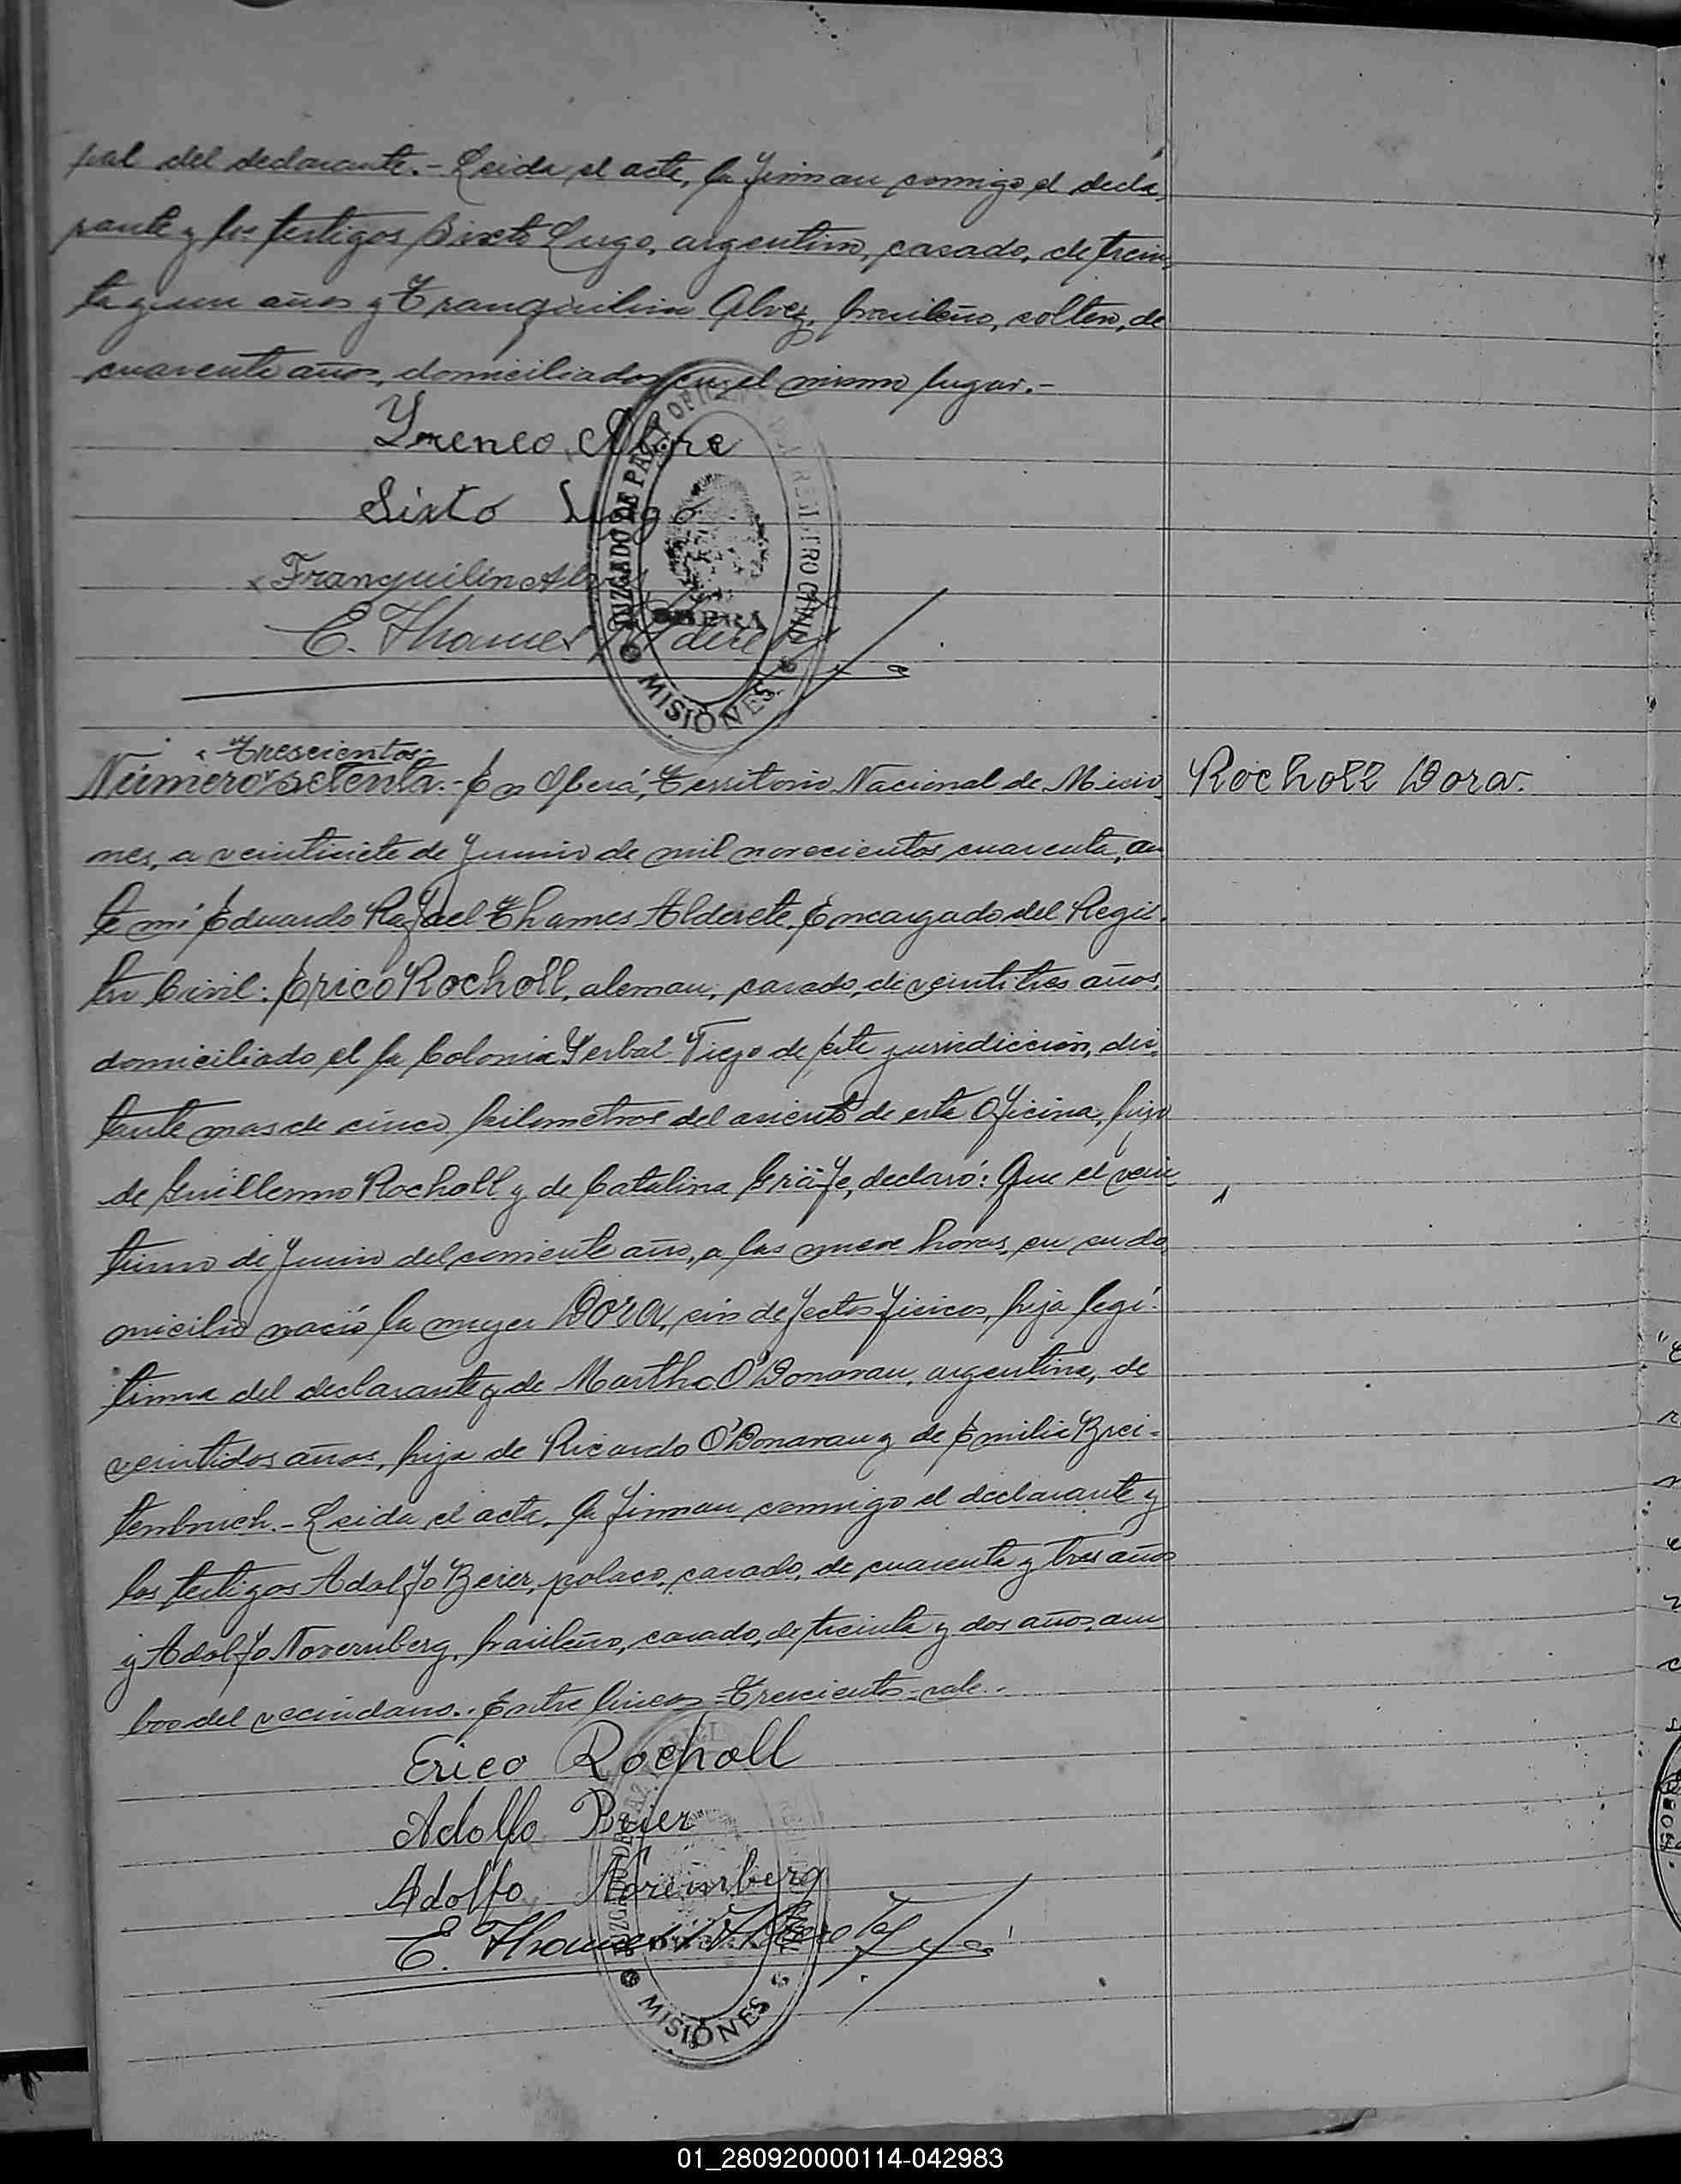 pal del declarante.- Leida el acta, la firman conmigo el decla-
rante y los testigos Sixto Lugo, argentino, casado, de trein-
ta y un años y Tranquilino Alvez, brasileño, soltero, de
cuarenta años, domiciliados en el mismo lugar.-
Yreneo
Sixto Lugo
Franquilin Alves
E. Thames Alderete
JUZGADO DE PAZ Y OFICINA DEL REGISTRO CIVIL
OBERA
MISIONES
Trescientos
Número setenta.- En Oberá, Territorio Nacional de Misio-
nes, a veintisiete de Junio de mil novecientos cuarenta, an-
te mí Eduardo Rafael Thames Alderete, Encargado del Regis-
tro Civil: Erico Rocholl, aleman, casado, de veintitres años,
domiciliado el la Colonia Yerbal Viejo de esta jurisdicción, dis-
tante mas de cinco kilometros del asiento de esta Oficina, hijo
de Guillermo Rocholl y de Catalina Gräfe, declaró: Que el vein-
tiuno de Junio del corriente año, a las nueve horas, en su do-
micilio nació la mujer Dora, sin defectos fisicos, hija legí-
tima del declarante y de Martha O'Donavan, argentina, de
veintidos años, hija de Ricardo O'Donavan y de Emilia Brei-
tenbruch.- Leida el acta, la firman conmigo el declarante y
los testigos Adolfo Beier, polaco, casado, de cuarenta y tres años
y Adolfo Novernberg, brasileño, casado, de treinta y dos años, am-
bos del vecindario.. Entre lineas=Trescientos-vale.
Erico Rocholl
Adolfo Beier
Adolfo
E. Thames Alderete
MISIONES
Rocholl Dora.
01_280920000114-042983